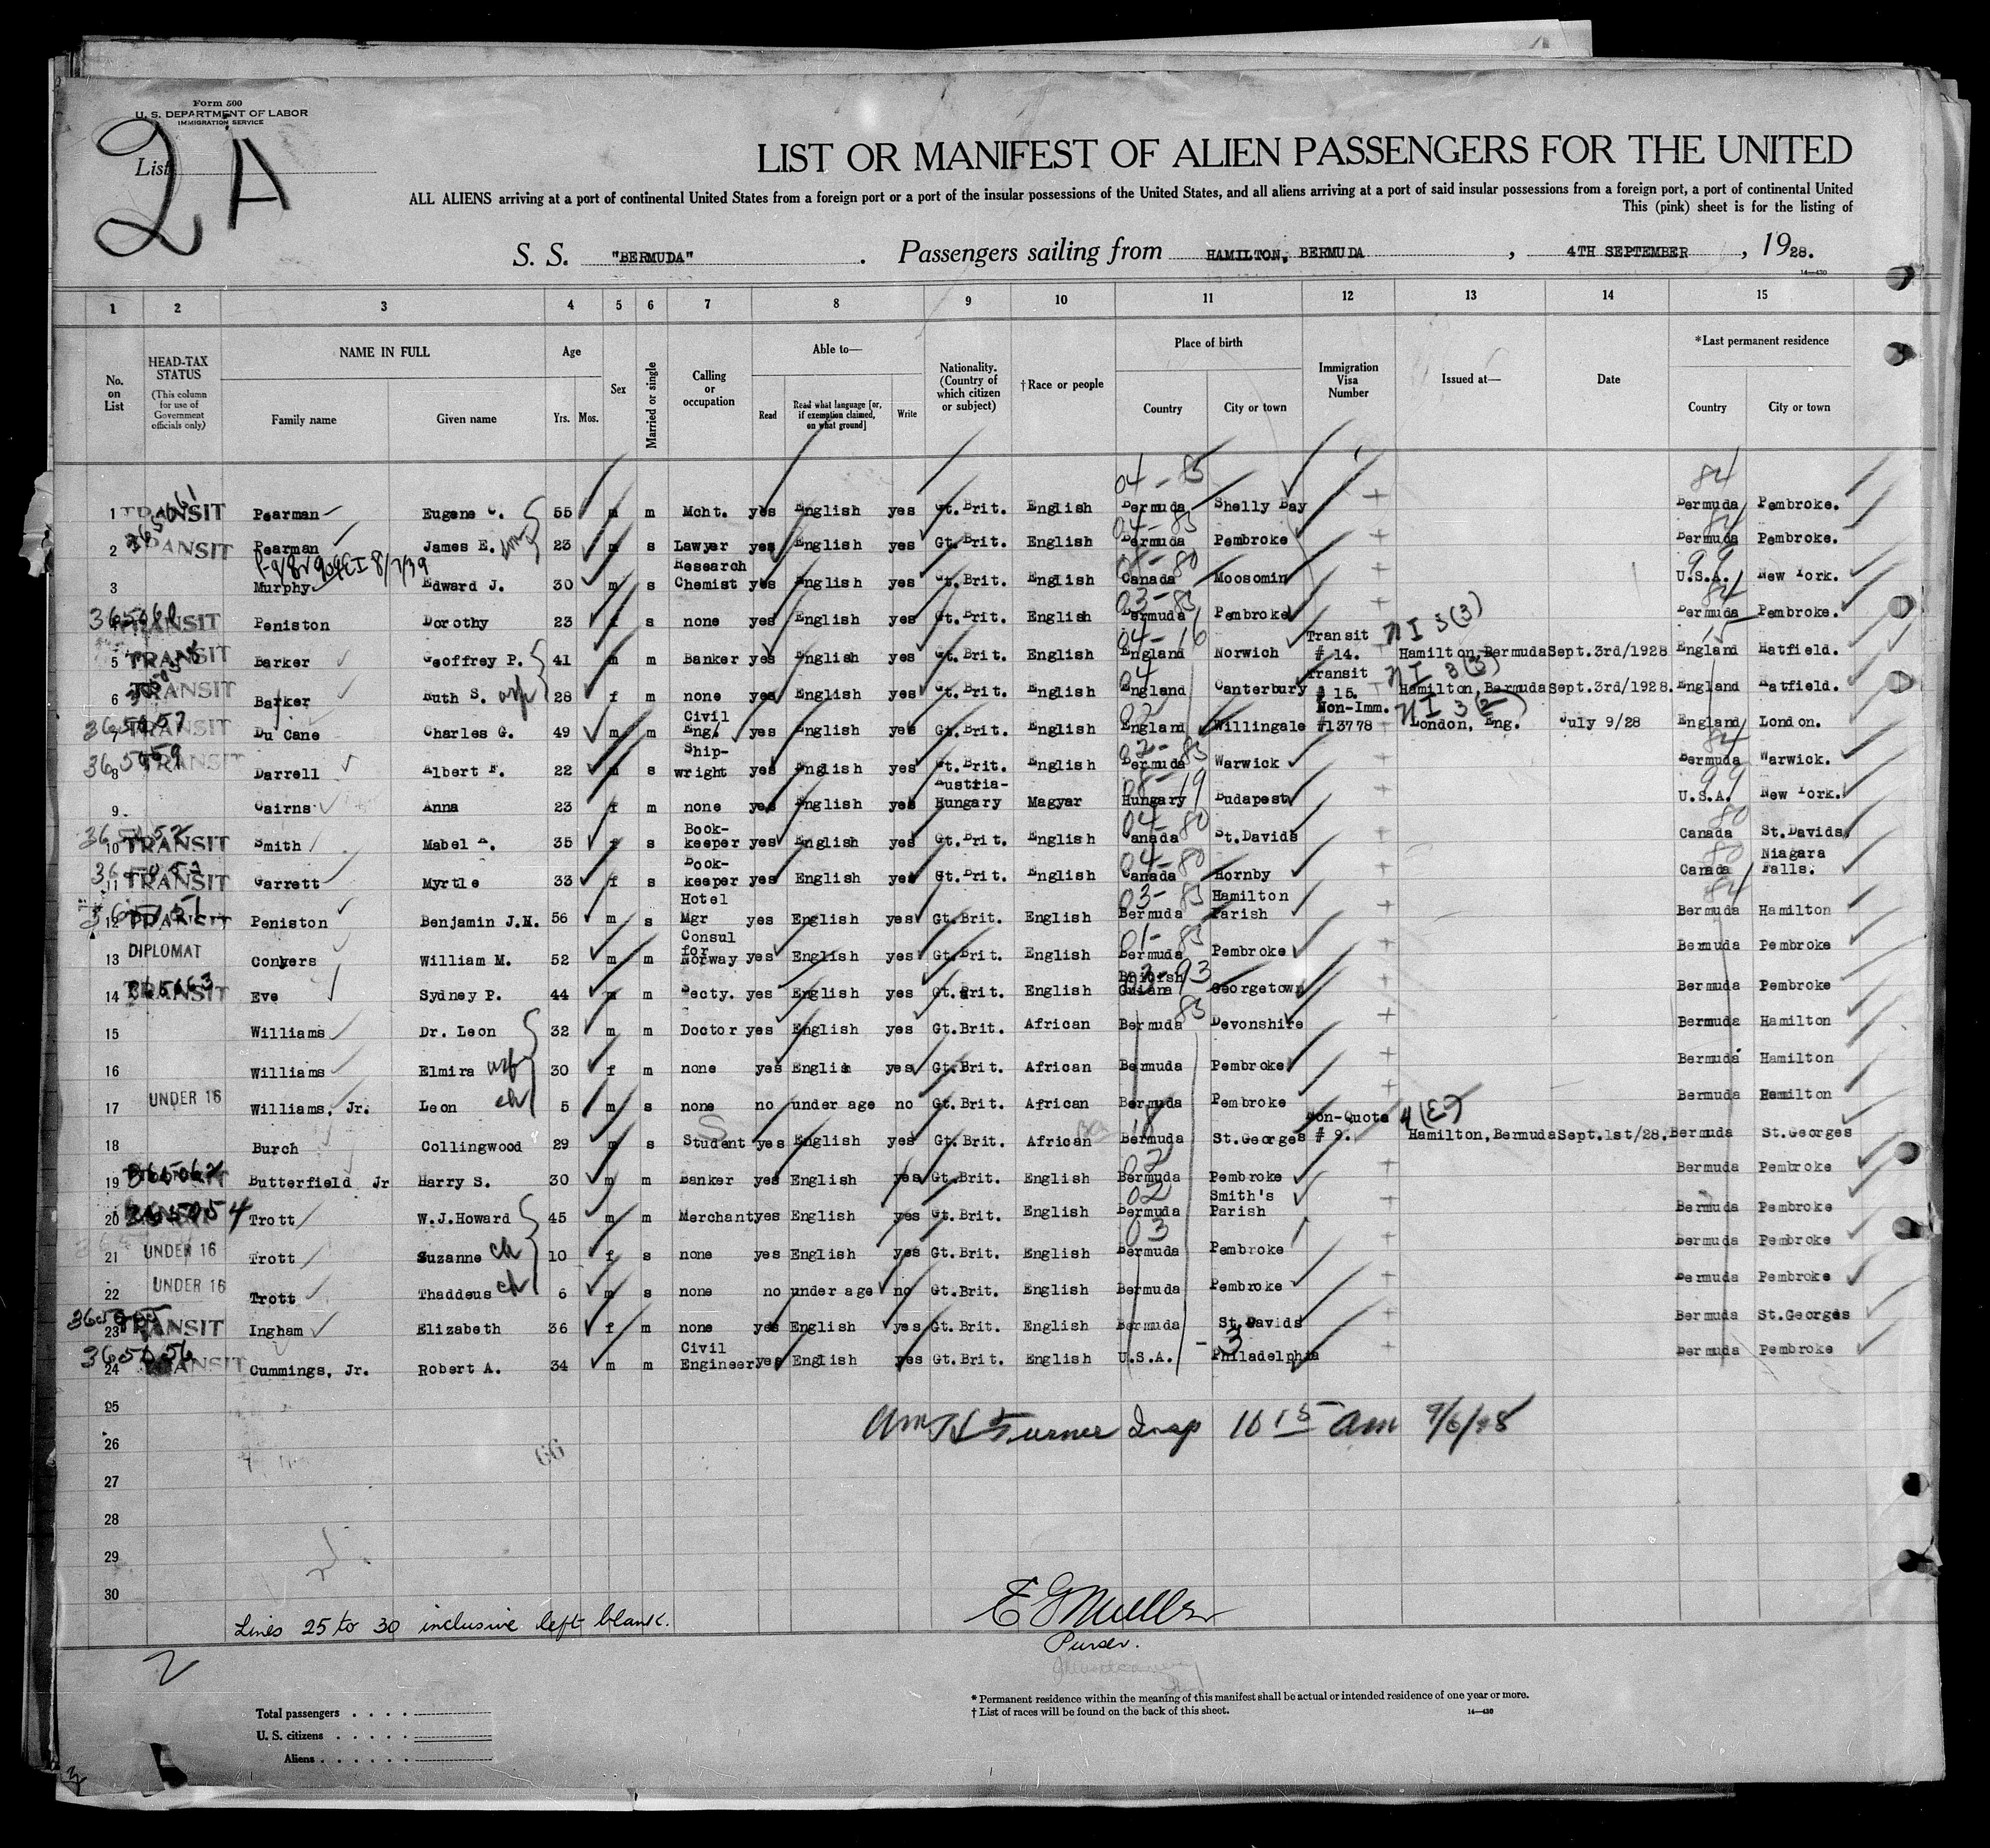 Form 500
U. S. DEPARTMENT OF LABOR
IMMIGRATION SERVICE
List
2 A
LIST OR MANIFEST OF ALIEN PASSENGERS FOR THE UNITED
ALL ALIENS arriving at a port of continental United States from a foreign port or a port of the insular possessions of the United States, and all aliens arriving at a port of said insular possessions from a foreign port, a port of continental United
This (pink) sheet is for the listing of
S. S. "BERMUDA" . Passengers sailing from HAMILTON, BERMUDA , 4TH SEPTEMBER , 1928.
14—430
1 2 3 4 5 6 7 8 9 10 11 12 13 14 15
No. on List
HEAD-TAX STATUS (This column for use of Government officials only)
NAME IN FULL
Family name Given name
Age
Yrs. Mos.
Sex
Married or single
Calling or occupation
Able to—
Read Read what language [or, if exemption claimed, on what ground] Write
Nationality. (Country of which citizen or subject)
†Race or people
Place of birth
Country City or town
Immigration Visa Number
Issued at—
Date
*Last permanent residence
Country City or town
1 TRANSIT Pearman Eugene C. 55 m m Mcht. yes English yes Gt.Brit. English Bermuda Shelly Bay Bermuda Pembroke.
2 TRANSIT Pearman James E. 23 m s Lawyer yes English yes Gt.Brit. English Bermuda Pembroke Bermuda Pembroke.
3 Murphy Edward J. 30 m s Research Chemist yes English yes Gt.Brit. English Canada Moosomin U.S.A. New York.
TRANSIT Peniston Dorothy 23 f s none yes English yes Gt.Brit. English Bermuda Pembroke Bermuda Pembroke.
5 TRANSIT Barker Geoffrey P. 41 m m Banker yes English yes Gt.Brit. English England Norwich Transit # 14. NI 3(3) Hamilton,Bermuda Sept.3rd/1928 England Hatfield.
6 TRANSIT Barker Ruth S. wf 28 f m none yes English yes Gt.Brit. English England Canterbury Transit # 15. NI 3(3) Hamilton,Bermuda Sept.3rd/1928. England Hatfield.
7 TRANSIT Du Cane Charles G. 49 m m Civil Eng. yes English yes Gt.Brit. English England Willingale Non-Imm. #13778 NI 3(2) London, Eng. July 9/28 England London.
8 TRANSIT Darrell Albert F. 22 m s Ship-wright yes English yes Gt.Brit. English Bermuda Warwick Bermuda Warwick.
9 Cairns Anna 23 f m none yes English yes Austria-Hungary Magyar Hungary Budapest U.S.A. New York.
10 TRANSIT Smith Mabel A. 35 f s Book-keeper yes English yes Gt.Brit. English Canada St.Davids Canada St.Davids
11 TRANSIT Garrett Myrtle 33 f s Book-keeper yes English yes Gt.Brit. English Canada Hornby Canada Niagara Falls.
12 TRANSIT Peniston Benjamin J.M. 56 m s Hotel Mgr yes English yes Gt.Brit. English Bermuda Hamilton Parish Bermuda Hamilton
13 DIPLOMAT Conyers William M. 52 m m Consul for Norway yes English yes Gt.Brit. English Bermuda Pembroke Bermuda Pembroke
14 TRANSIT Eve Sydney P. 44 m m Secty. yes English yes Gt.Brit. English British Guiana Georgetown Bermuda Pembroke
15 Williams Dr. Leon 32 m m Doctor yes English yes Gt.Brit. African Bermuda Devonshire Bermuda Hamilton
16 Williams Elmira wf 30 f m none yes English yes Gt.Brit. African Bermuda Pembroke Bermuda Hamilton
17 UNDER 16 Williams, Jr. Leon ch 5 m s none no under age no Gt.Brit. African Bermuda Pembroke Bermuda Hamilton
18 Burch Collingwood 29 m s Student yes English yes Gt.Brit. African Bermuda St.Georges Non-Quote # 9. 4(E) Hamilton,Bermuda Sept.1st/28. Bermuda St.Georges
19 Butterfield Jr Harry S. 30 m m Banker yes English yes Gt.Brit. English Bermuda Pembroke Bermuda Pembroke
20 Trott W.J.Howard 45 m m Merchant yes English yes Gt.Brit. English Bermuda Smith's Parish Bermuda Pembroke
21 UNDER 16 Trott Suzanne ch 10 f s none yes English yes Gt.Brit. English Bermuda Pembroke Bermuda Pembroke
22 UNDER 16 Trott Thaddeus ch 6 m s none no under age no Gt.Brit. English Bermuda Pembroke Bermuda Pembroke
23 TRANSIT Ingham Elizabeth 36 f m none yes English yes Gt.Brit. English Bermuda St.Davids Bermuda St.Georges
24 TRANSIT Cummings, Jr. Robert A. 34 m m Civil Engineer yes English yes Gt.Brit. English U.S.A. Philadelphia Bermuda Pembroke
25
Wm H Turner Insp 10 15 am 9/6/28
26 66
27
28
29
30
Lines 25 to 30 inclusive left blank.
E G Mueller
Purser.
2
Total passengers
U. S. citizens
Aliens
* Permanent residence within the meaning of this manifest shall be actual or intended residence of one year or more.
† List of races will be found on the back of this sheet.
14—430